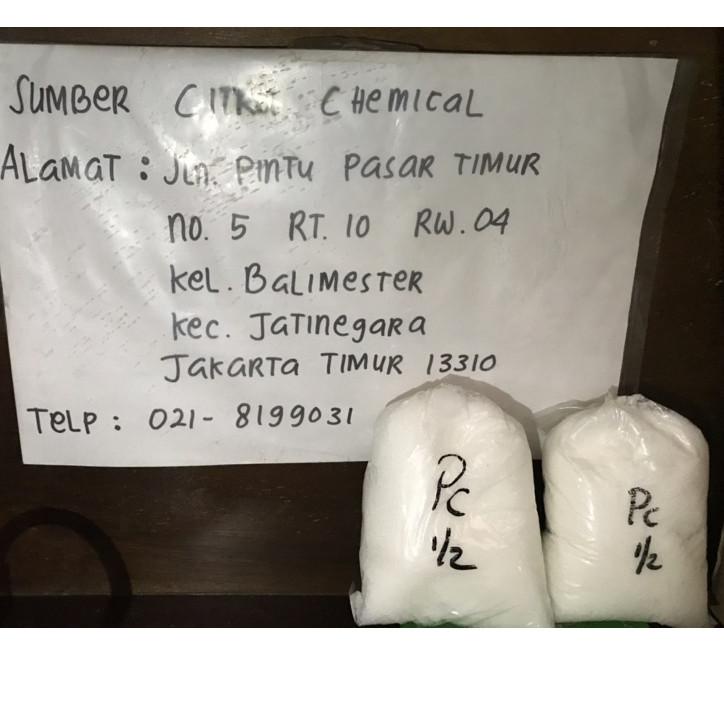 SUMBER CITRA CHEMICAL
ALAMAT : JLN. PINTU PASAR TIMUR
NO. 5 RT. 10 RW. 04
KEL. BALIMESTER
KEC. JATINEGARA
JAKARTA TIMUR 13310
TELP : 021- 8199031
PC
1/2
PC
1/2